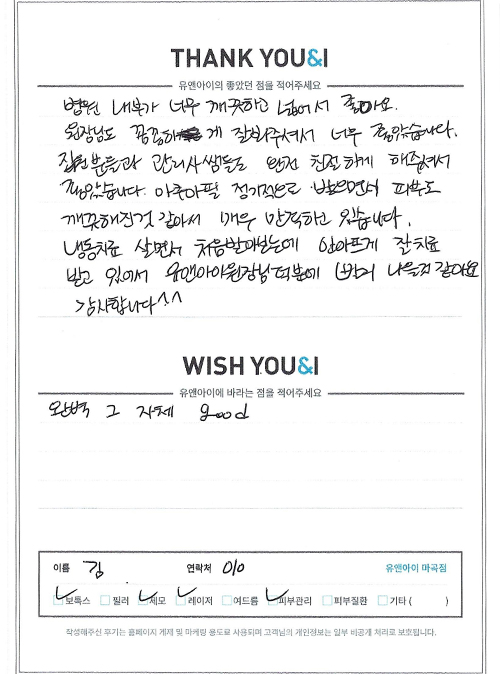 THANK YOU&I
유앤아이의 좋았던 점을 적어주세요
병원 내부가 너무 깨끗하고 넓어서 좋아요.
원장님도 꼼꼼하게 잘봐주셔서 너무 좋았습니다.
직원분들과 관리사쌤들도 완전 친절하게 해주셔서
좋았습니다. 아쿠아필 정기적으로 받으면서 피부도
깨끗해진것 같아서 매우 만족하고 있습니다.
냉동치료 살면서 처음받아보는데 안아프게 잘치료
받고 있어서 유앤아이원장님덕분에 빨리 나을것 같아요
감사합니다^^
WISH YOU&I
유앤아이에 바라는 점을 적어주세요
완벽 그 자체 good
이름 김 연락처 010 유앤아이 마곡점
보톡스 필러 제모 레이저 여드름 피부관리 피부질환 기타 ( )
작성해주신 후기는 홈페이지 게재 및 마케팅 용도로 사용되며 고객님의 개인정보는 일부 비공개 처리로 보호됩니다.